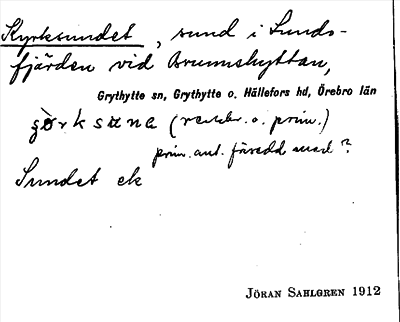 Kyrksundet, sund i Sunds-
fjärden vid Brunnshyttan,
Grythytte sn, Grythytte o. Hällefors hd, Örebro län
(vanl. o. prim.)
prim. ant. föredd med ?
Sundet ek
JÖRAN SAHLGREN 1912